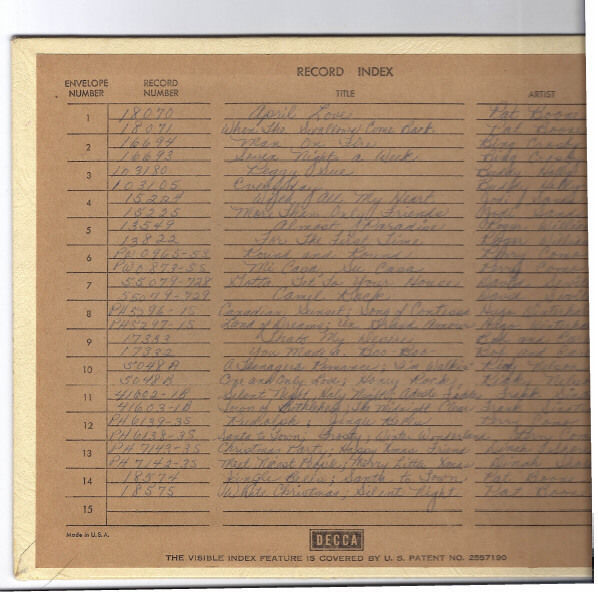 RECORD INDEX
ENVELOPE NUMBER RECORD NUMBER TITLE ARTIST
1 18070 April Love Pat Boone
18071 When The Swallows Come Back Pat Boone
2 16694 Man On Fire Bing Crosby
16693 Seven Nights a Week Bing Crosby
3 103180 Peggy Sue Buddy Holly
103105 Everyday Buddy Holly
4 15224 With All My Heart Jodi Sands
15225 More Than Only Friends Jodi Sands
5 13549 Almost Paradise Roger Willia
13822 For The First Time Roger Willia
6 PW0965-5S Round and Round Perry Como
PW0873-5S Mi Casa, Su Casa Perry Como
7 55079-728 Gotta Get To Your House David
55079-729 Camel Rock David
8 P45296-15 Canadian Sunset; Song of Hugo Winterha
P45297-15 Land of Dreams; Un Grand Amour Hugo Winterha
9 17333 Show My Bob and
17332 You Made a Boo-Boo Bob and
10 5048A A Teenagers Romance; I'm Walkin' Ricky Nelson
5048B One and Only Love; Honey Rock Ricky Nelson
11 41602-1B Silent Night, Holy Night; Adeste Frank
41603-1B of Bethlehem; It Midnight Clear Frank
12 P46139-3S Rudolph; Jingle Bells Perry Como
P46138-3S Santa to Town; Frosty; Winter Wonderland Perry Com
13 P47143-3S Christmas Party; Happy Xmas Dinah Shor
P47142-3S Merry Little Xmas Dinah Shor
14 18574 Jingle Bells; Santa to Town Pat Boone
18575 White Christmas; Silent Night Pat Boone
15
Made in U.S.A.
DECCA
THE VISIBLE INDEX FEATURE IS COVERED BY U. S. PATENT NO. 2557190